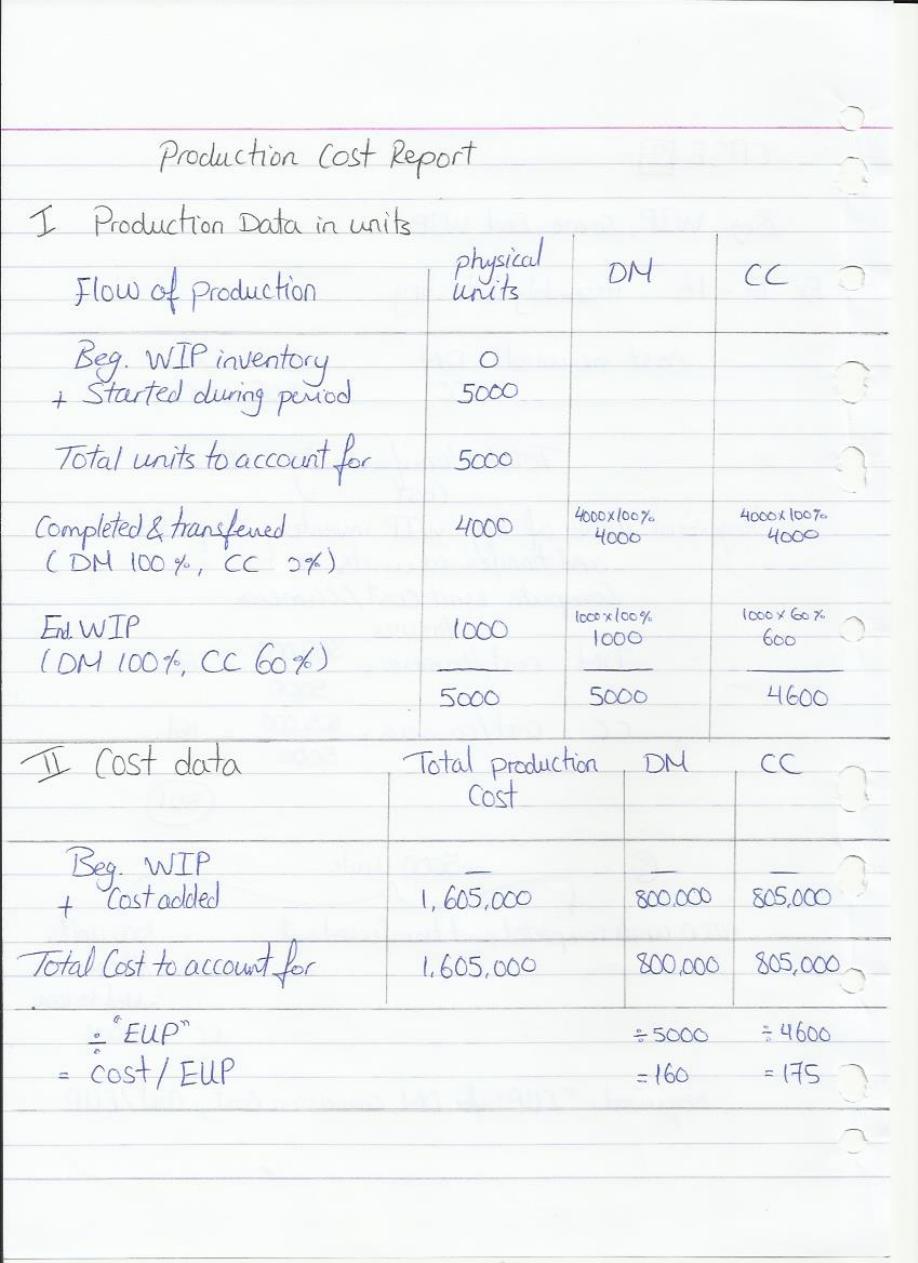 Production Cost Report
I Production Data in units
Flow of production physical units DM CC
Beg. WIP inventory 0
+ Started during period 5000
Total units to account for 5000
Completed & transferred 4000 4000x100% 4000 4000x100% 4000
(DM 100%, CC %)
End. WIP 1000 1000x100% 1000 1000x60% 600
(DM 100%, CC 60%)
5000 5000 4600
II Cost data Total production Cost DM CC
Beg. WIP — — —
+ Cost added 1,605,000 800,000 805,000
Total Cost to account for 1,605,000 800,000 805,000
÷ "EUP" ÷5000 ÷4600
= cost/EUP =160 =175